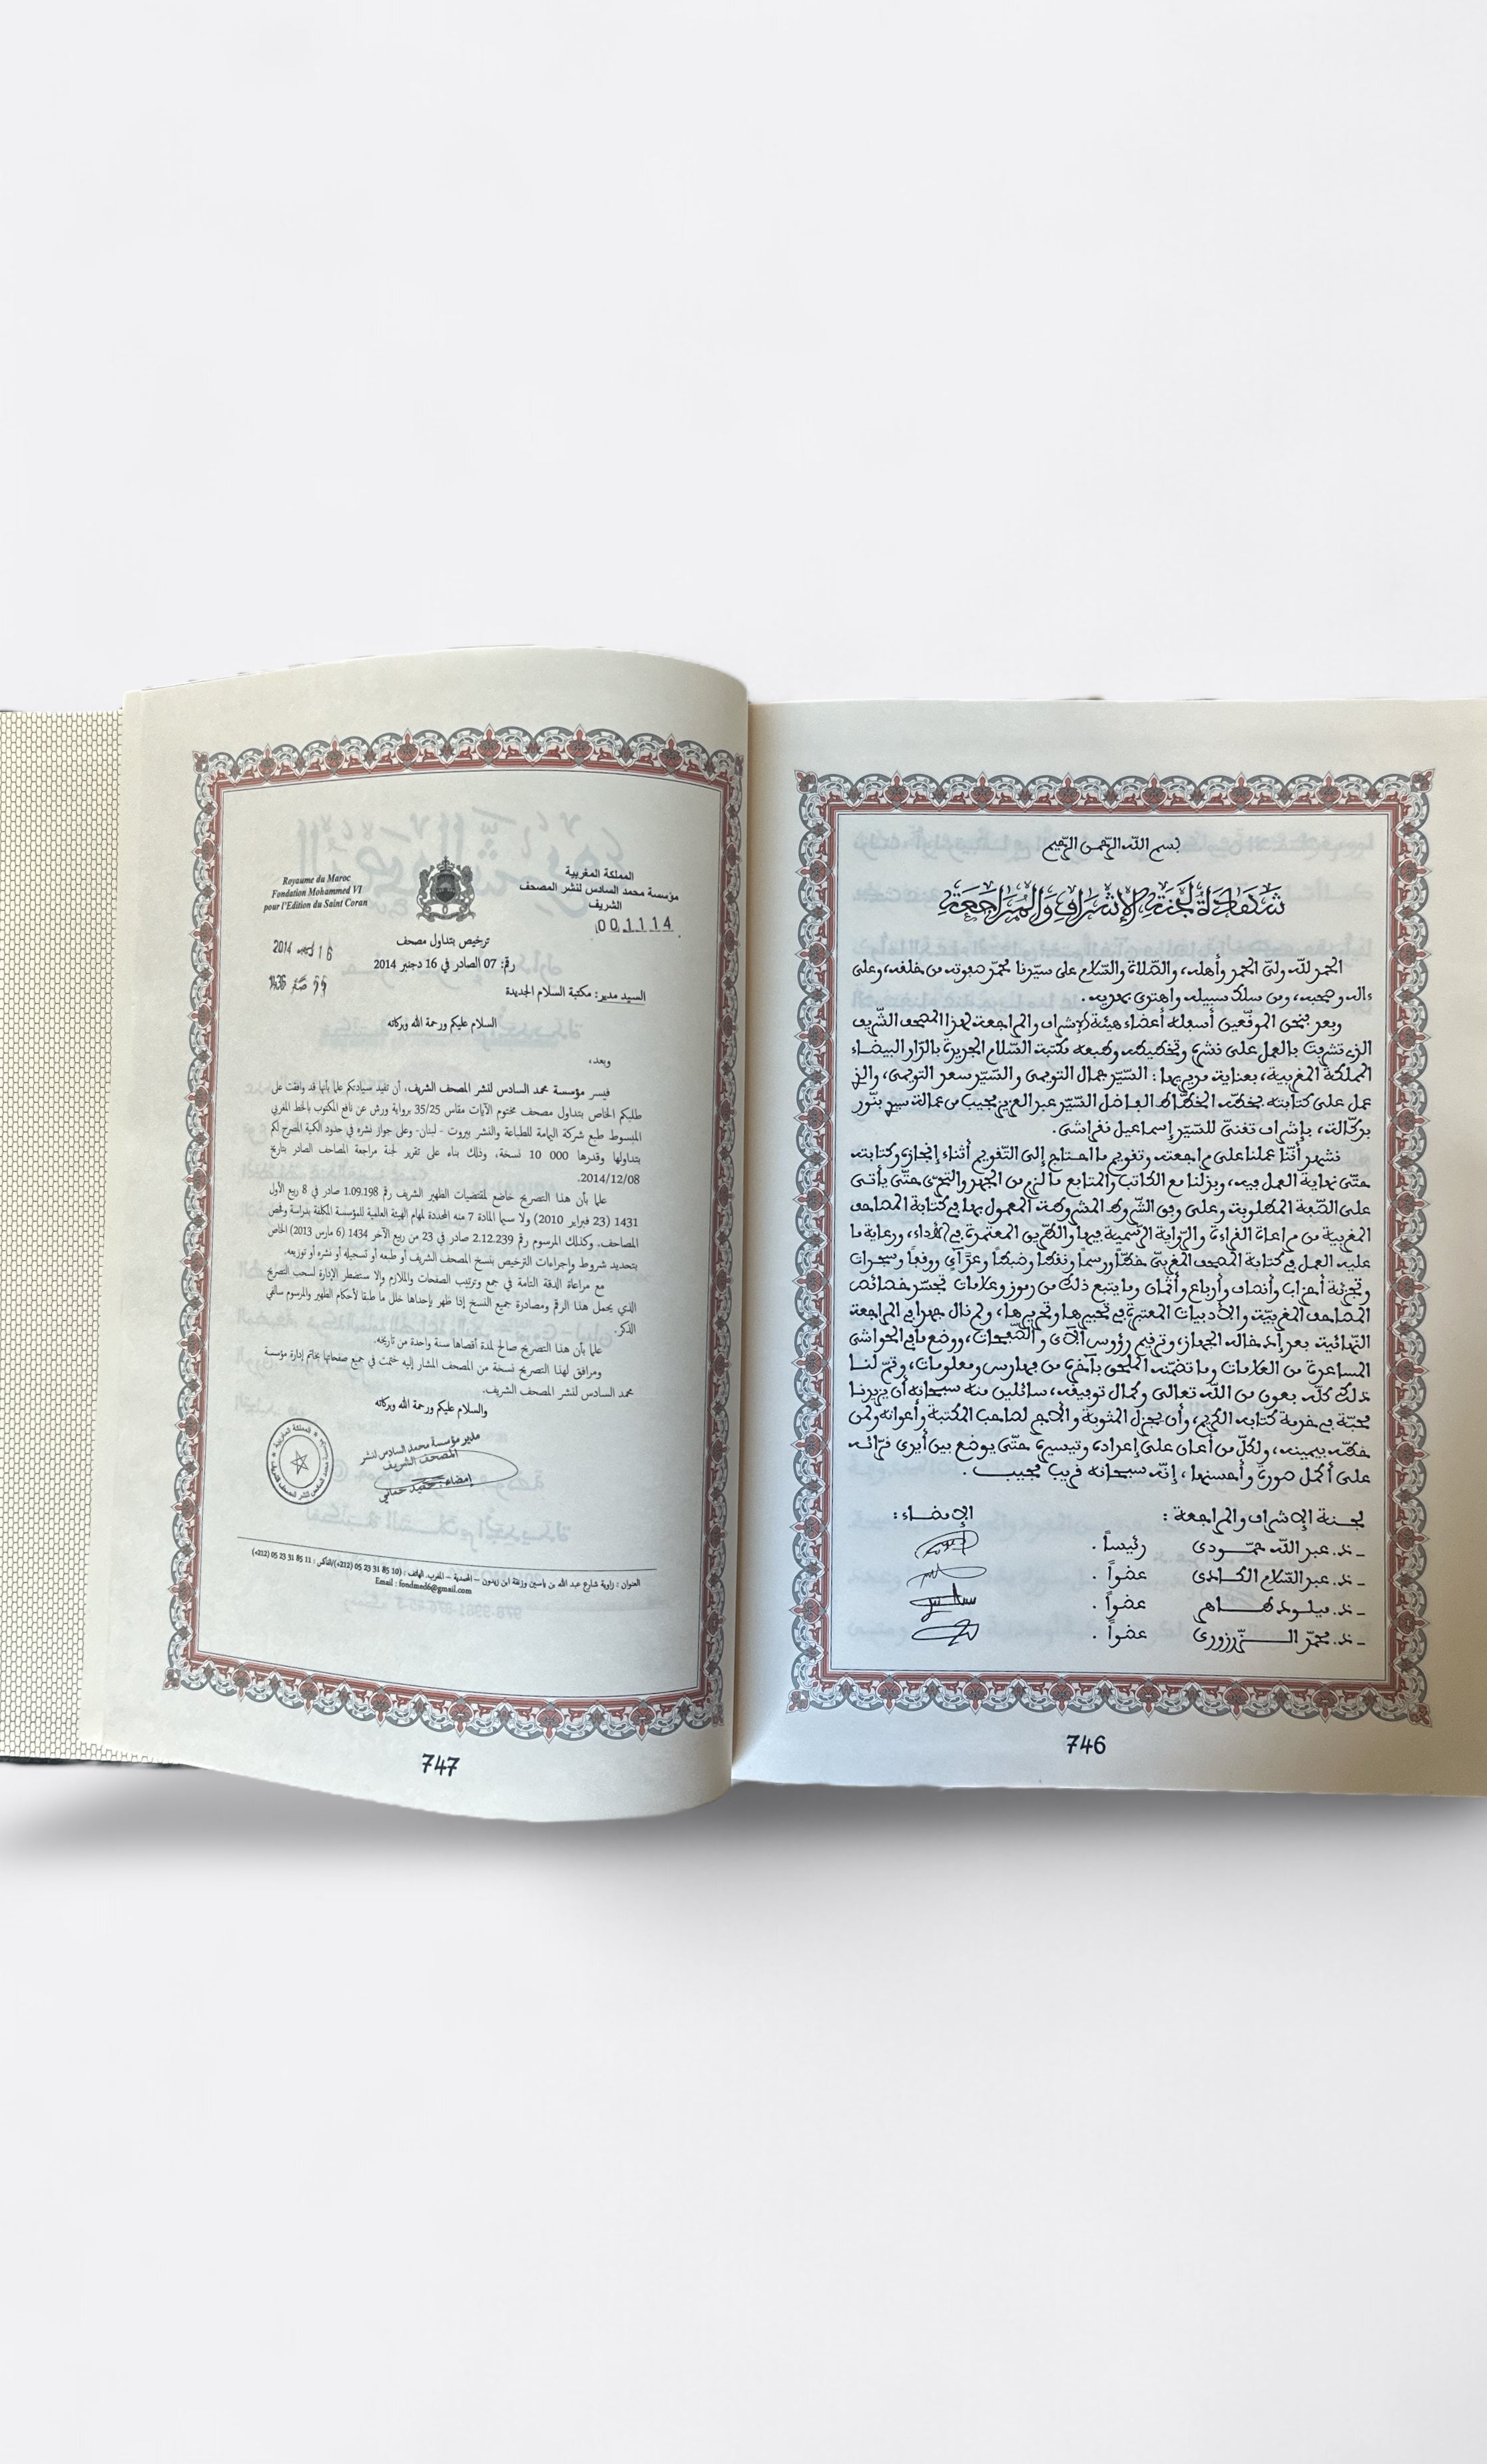 بسم الله الرحمن الرحيم
شهادة لجنة الإشراف والمراجعة
الحمد لله وليّ الحمد وأهله، والصّلاة والسّلام على سيّدنا محمّد صفوته من خلقه، وعلى
ءاله وصحبه، ومن سلك سبيله واهتدى بهديه.
وبعد فنحن الموقّعين أسفله أعضاء هيئة الإشراف والمراجعة لهذا المصحف الشّريف
الذي تشرفت بالعمل على نشره وتخطيطه وطبعه مكتبة السّلام الجديدة بالدّار البيضاء
المملكة المغربية، بعناية مديريها: السّيّد جمال التومي والسّيّد سعد التومي، والذي
عمل على كتابته بخطّه الخطّاط الفاضل السّيّد عبد العزيز مجيب من عمالة سيدي بنّور
بدكّالة، بإشراف تقنيّ للسّيّد إسماعيل نفراشي.
نشهد أنّنا عملنا على مراجعته وتقويم ما احتاج إلى التّقويم أثناء إنجازه وكتابته
حتّى نهاية العمل فيه، وبذلنا مع الكاتب والمتابع ما لزم من الجهد والتحرّي حتّى يأتي
على الصّفة المطلوبة وعلى وفق الشّروط المشروطة المعمول بها في كتابة المصاحف
المغربية من مراعاة القراءة والرّواية الرّسمية فيها والطّريق المعتمدة في الأداء، ورعاية ما
عليه العمل في كتابة المصحف المغربيّ خطّا ورسما ونقطا وضبطا وعدّ آي ووقفا وسجدات
وتجزئة أحزاب وأنصاف وأرباع وأثمان وما يتبع ذلك من رموز وعلامات تجسّد خصائص
المصاحف المغربيّة والأدبيات المعتبرة في تحبيرها وتحريرها، ولم نال جهدا في المراجعة
النّهائية بعد إدخاله الجهاز، وترقيم رؤوس الآي والصّفحات، ووضع ما في الحواشي
المساعدة من العلامات وما تضمّنه الملحق بآخره من فهارس ومعلومات، وتمّ لنا
ذلك كلّه بعون من الله تعالى وكمال توفيقه، سائلين منه سبحانه أن يزيدنا
محبّة في خدمة كتابه الكريم، وأن يجزل المثوبة والأجر لصاحب المكتبة وأعوانه ولمن
خطّه بيمينه، ولكلّ من أعان على إعداده وتيسيره حتّى يوضع بين أيدي قرّائه
على أكمل صورة وأحسنها، إنّه سبحانه قريب مجيب.
لجنة الإشراف والمراجعة: الإمضاء:
ـ د. عبد الله حمّودي رئيساً.
ـ د. عبد السّلام الكاملي عضواً.
ـ د. ميلود طاهر عضواً.
ـ د. محمّد السرزوري عضواً.
746
المملكة المغربية
مؤسسة محمد السادس لنشر المصحف
الشريف
001114
Royaume du Maroc
Fondation Mohammed VI
pour l'Edition du Saint Coran
16 2014
1436
ترخيص بتداول مصحف
رقم: 07 الصادر في 16 دجنبر 2014
السيد مدير: مكتبة السلام الجديدة
السلام عليكم ورحمة الله وبركاته
وبعد،
فيسر مؤسسة محمد السادس لنشر المصحف الشريف، أن تفيد سيادتكم علما بأنها قد وافقت على
طلبكم الخاص بتداول مصحف مختوم الآيات مقاس 35/25 برواية ورش عن نافع المكتوب بالخط المغربي
المبسوط طبع شركة اليمامة للطباعة والنشر بيروت - لبنان- وعلى جواز نشره في حدود الكمية المصرح لكم
بتداولها وقدرها 000 10 نسخة، وذلك بناء على تقرير لجنة مراجعة المصاحف الصادر بتاريخ
2014/12/08.
علما بأن هذا التصريح خاضع لمقتضيات الظهير الشريف رقم 1.09.198 صادر في 8 ربيع الأول
1431 (23 فبراير 2010) ولا سيما المادة 7 منه المحددة لمهام الهيئة العلمية للمؤسسة المكلفة بدراسة وفحص
المصاحف. وكذلك المرسوم رقم 2.12.239 صادر في 23 من ربيع الآخر 1434 (6 مارس 2013) الخاص
بتحديد شروط وإجراءات الترخيص بنسخ المصحف الشريف أو طبعه أو تسجيله أو نشره أو توزيعه.
مع مراعاة الدقة التامة في جمع وترتيب الصفحات والملازم وإلا ستضطر الإدارة لسحب التصريح
الذي يحمل هذا الرقم ومصادرة جميع النسخ إذا ظهر بإحداها خلل ما طبقا لأحكام الظهير والمرسوم سالفي
الذكر.
علما بأن هذا التصريح صالح لمدة أقصاها سنة واحدة من تاريخه.
ومرافق لهذا التصريح نسخة من المصحف المشار إليه ختمت في جميع صفحاتها بخاتم إدارة مؤسسة
محمد السادس لنشر المصحف الشريف.
والسلام عليكم ورحمة الله وبركاته
مدير مؤسسة محمد السادس لنشر
المصحف الشريف
إمضاء: حميد حماني
العنوان : زاوية شارع عبد الله بن ياسين وزنقة ابن زيدون – المحمدية – المغرب. الهاتف : (10 85 31 23 05 (212+)/الفاكس : 11 85 31 23 05 (212+)
Email : fondmed6@gmail.com
747